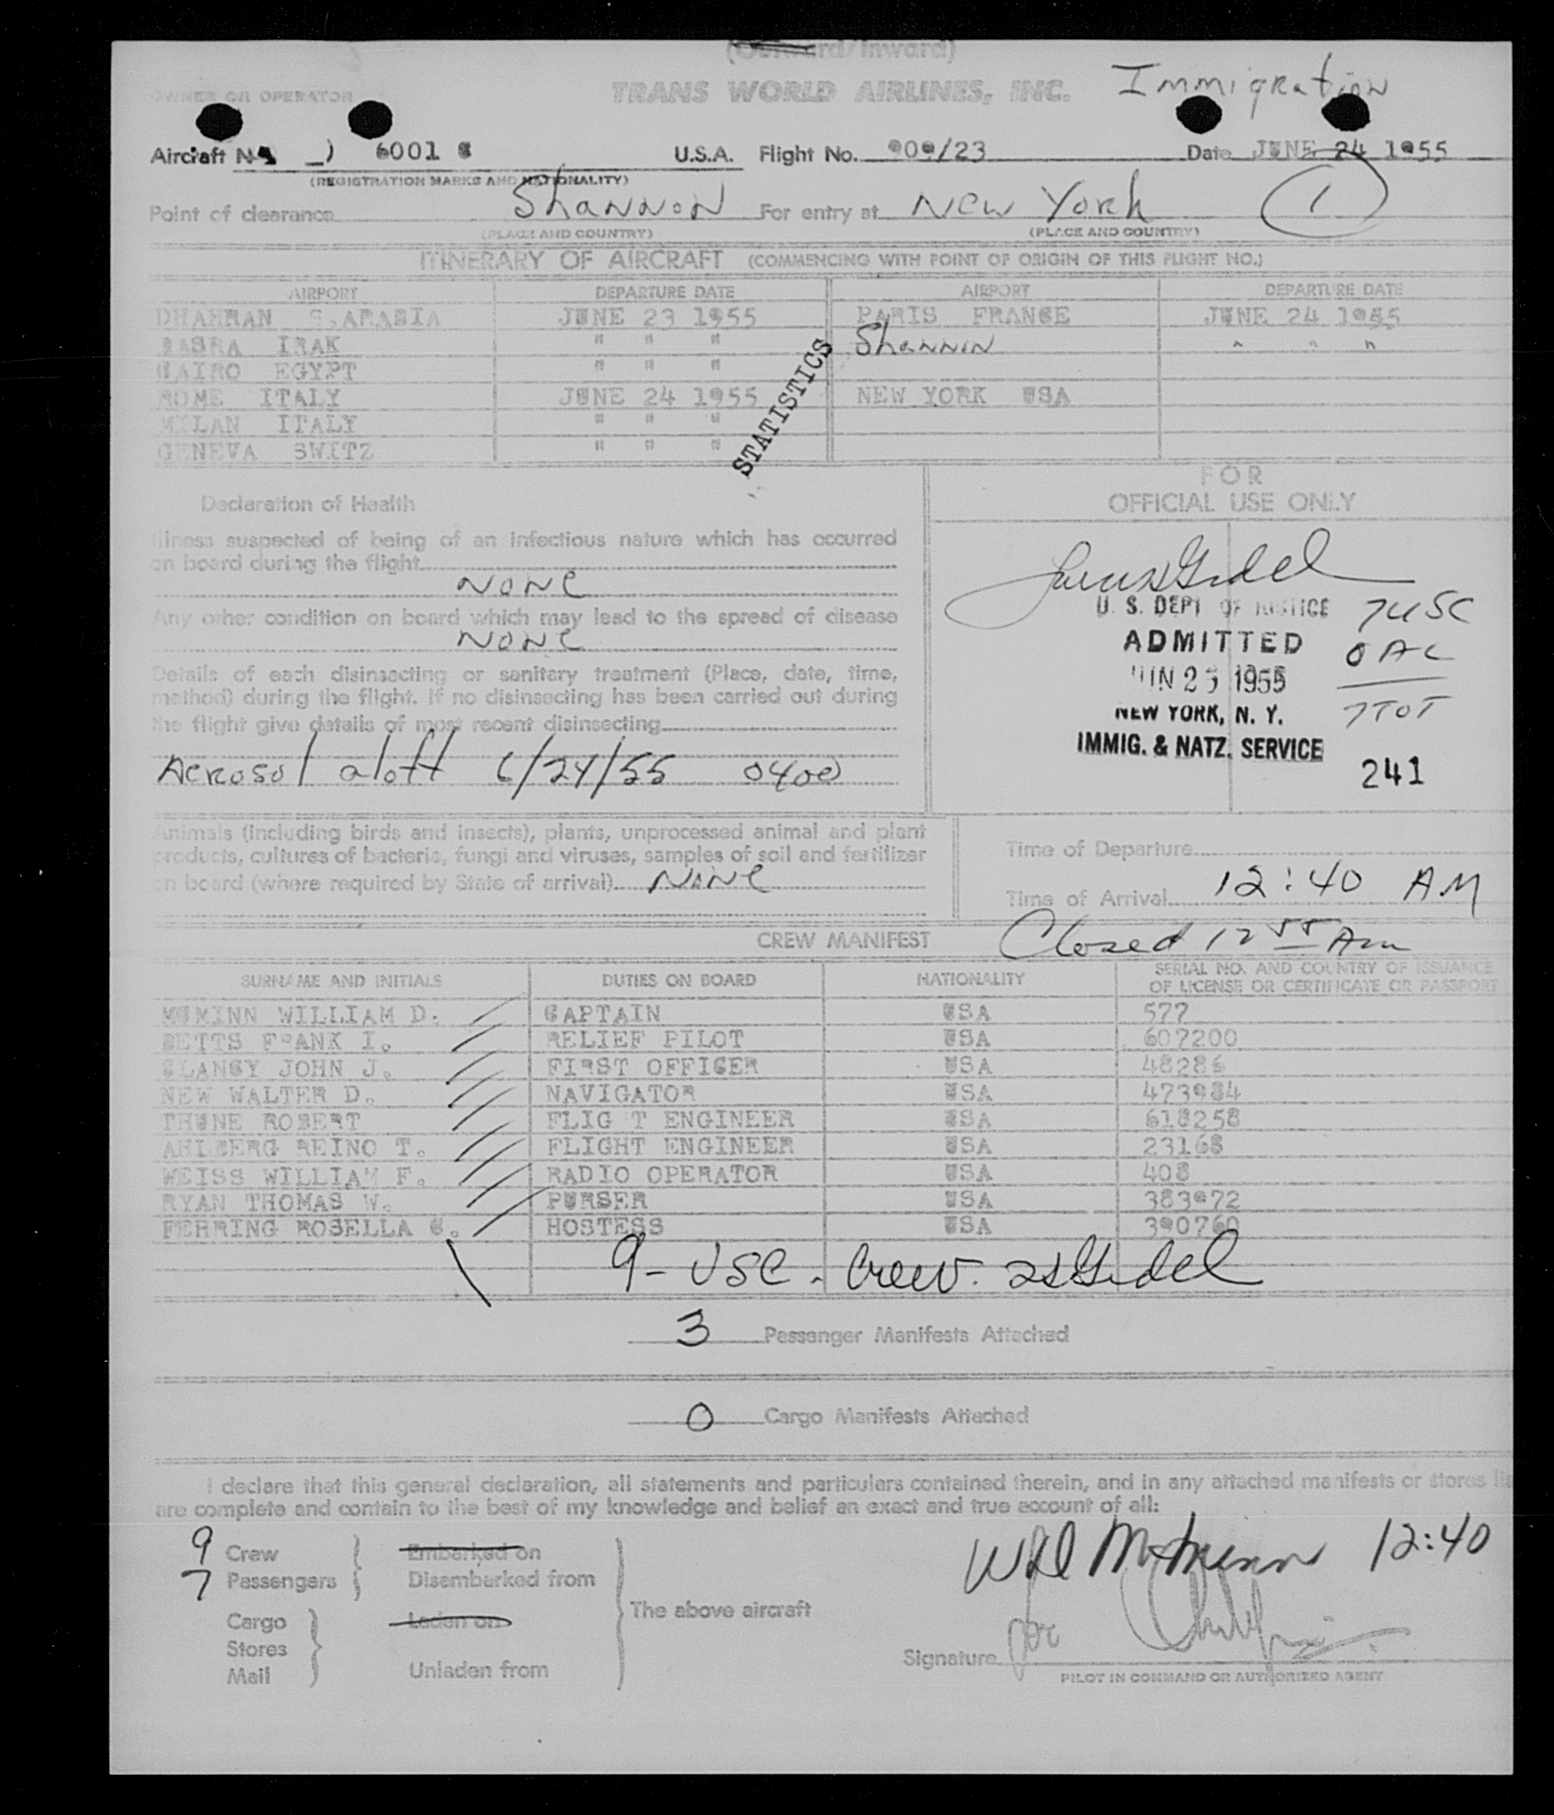 (Outward/Inward)
OWNER OR OPERATOR TRANS WORLD AIRLINES, INC. Immigration
Aircraft 6001 U.S.A. Flight No. 909/23 Date JUNE 24 1955
(REGISTRATION MARKS AND NATIONALITY)
Point of clearance Shannon For entry at New York 1
(PLACE AND COUNTRY) (PLACE AND COUNTRY)
ITINERARY OF AIRCRAFT (COMMENCING WITH POINT OF ORIGIN OF THIS FLIGHT NO.)
AIRPORT DEPARTURE DATE AIRPORT DEPARTURE DATE
DHAHRAN S.ARABIA JUNE 23 1955 PARIS FRANCE JUNE 24 1955
BASRA IRAK " " " Shannon " " "
CAIRO EGYPT " " "
ROME ITALY JUNE 24 1955 NEW YORK USA
MILAN ITALY " " "
GENEVA SWITZ " " "
STATISTICS
FOR
OFFICIAL USE ONLY
Declaration of Health
Illness suspected of being of an infectious nature which has occurred
on board during the flight
None
Any other condition on board which may lead to the spread of disease
None
Details of each disinsecting or sanitary treatment (Place, date, time,
method) during the flight. If no disinsecting has been carried out during
the flight give details of most recent disinsecting
Aerosol aloft 6/24/55 0400
U. S. DEPT OF JUSTICE 7USC
ADMITTED 0 AC
JUN 25 1955
NEW YORK, N. Y. 7TOT
IMMIG. & NATZ. SERVICE
241
Animals (including birds and insects), plants, unprocessed animal and plant
products, cultures of bacteria, fungi and viruses, samples of soil and fertilizer
on board (where required by State of arrival) None
Time of Departure
Time of Arrival 12:40 AM
CREW MANIFEST Closed 12 55 Am
SURNAME AND INITIALS DUTIES ON BOARD NATIONALITY SERIAL NO. AND COUNTRY OF ISSUANCE
OF LICENSE OR CERTIFICATE OR PASSPORT
MCMINN WILLIAM D. CAPTAIN USA 577
BETTS FRANK I. RELIEF PILOT USA 607200
CLANCY JOHN J. FIRST OFFICER USA 48286
NEW WALTER D. NAVIGATOR USA 473984
THUNE ROBERT FLIG T ENGINEER USA 618258
AHLBERG REINO T. FLIGHT ENGINEER USA 23168
WEISS WILLIAM F. RADIO OPERATOR USA 408
RYAN THOMAS W. PURSER USA 383972
FEHRING ROSELLA C. HOSTESS USA 390760
9 - USC. Crew.
3 Passenger Manifests Attached
0 Cargo Manifests Attached
I declare that this general declaration, all statements and particulars contained therein, and in any attached manifests or stores
are complete and contain to the best of my knowledge and belief an exact and true account of all:
9 Crew Embarked on
7 Passengers Disembarked from
Cargo Laden on
Stores
Mail Unladen from
The above aircraft
WD McMinn 12:40
for
Signature
PILOT IN COMMAND OR AUTHORIZED AGENT